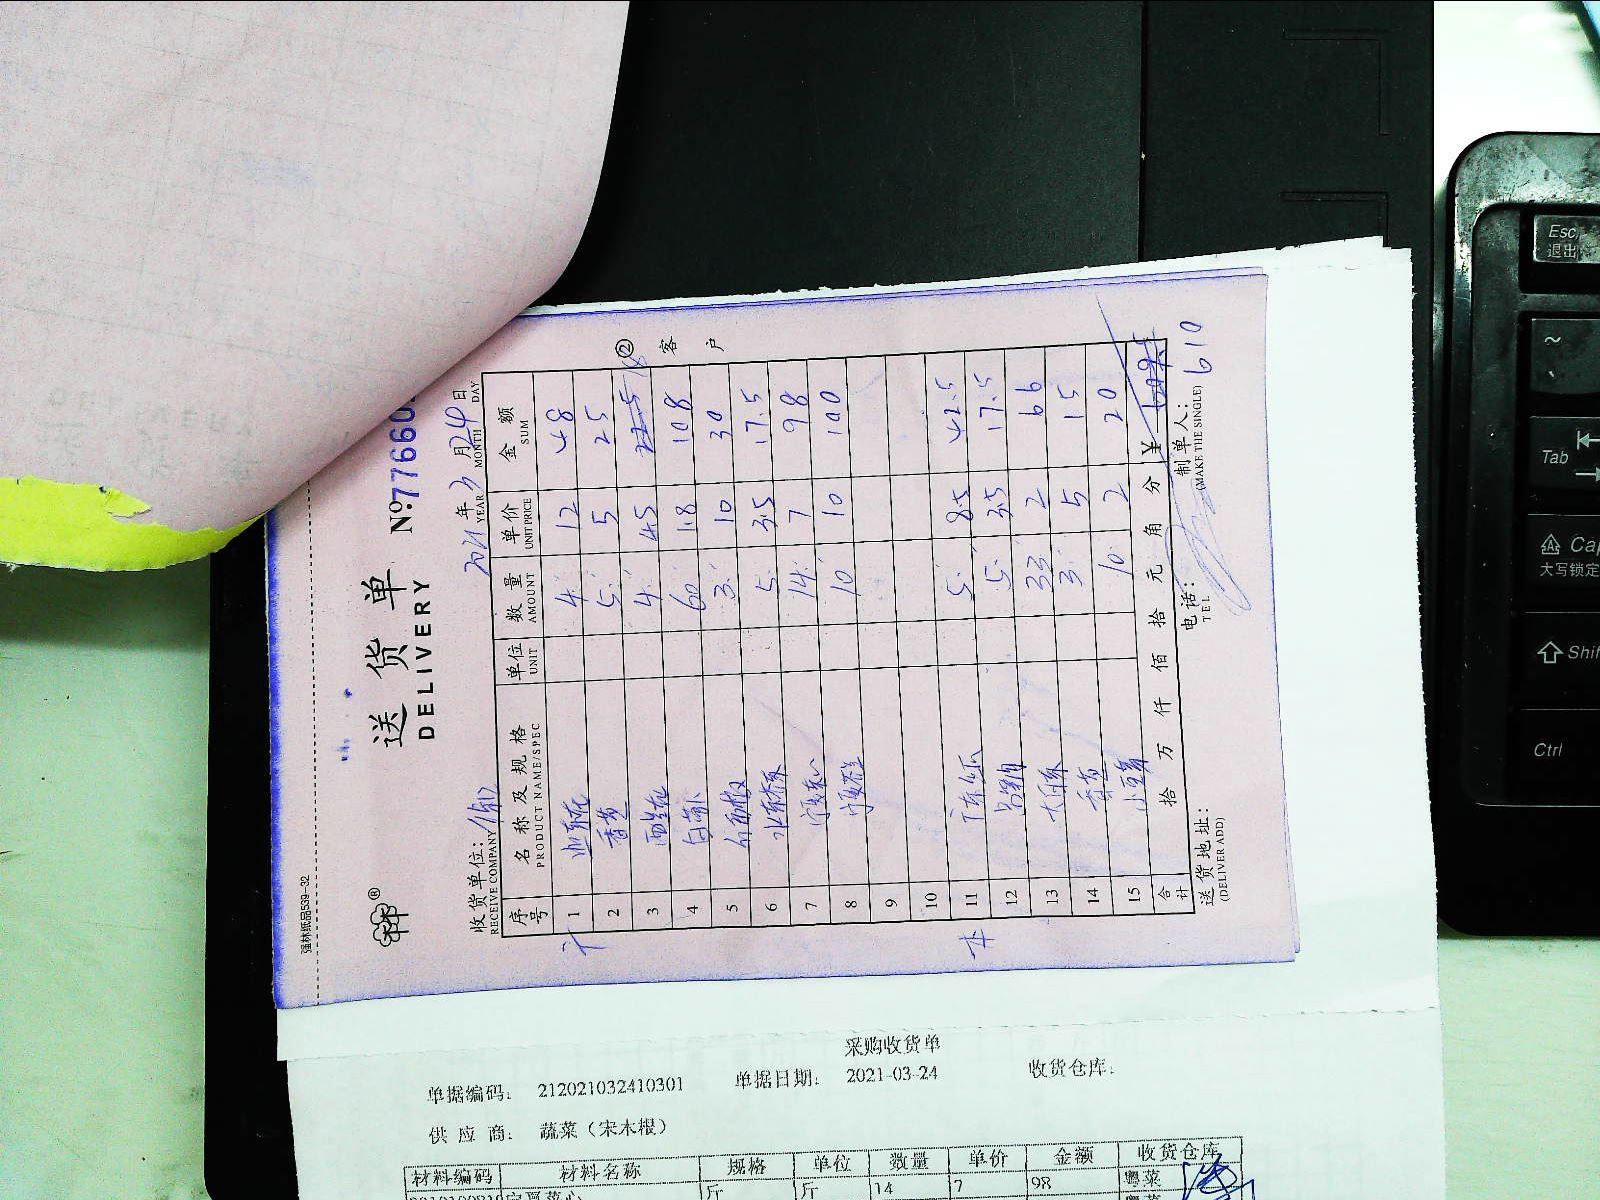 强林纸品539-32
送货单
DELIVERY
№77660
2021年3月24日
YEAR MONTH DAY
收货单位:
RECEIVE COMPANY
序号 名称及规格 单位 数量 单价 金额
PRODUCT NAME/SPEC UNIT AMOUNT UNIT PRICE SUM
1 4 12 48
2 香芒 5 5 25
3 西兰花 4 4.5 18
4 白萝卜 60 1.8 108
5 3 10 30
6 5 3.5 17.5
7 宁夏菜心 14 7 98
8 10 10 100
9
10
11 5 8.5 42.5
12 5 3.5 17.5
13 33 2 66
14 3 5 15
15 10 2 20
合计 拾 万 仟 佰 拾 元 角 分 ¥
610
送货地址:
(DELIVER ADD)
电话:
TEL
制单人:
(MAKE THE SINGLE)
② 客户
采购收货单
单据编码: 212021032410301 单据日期: 2021-03-24 收货仓库:
供应商: 蔬菜(宋木根)
材料编码 材料名称 规格 单位 数量 单价 金额 收货仓库
宁夏菜心 斤 斤 14 7 98 粤菜
Esc
退出
~
Tab
Cap
大写锁定
Shif
Ctrl